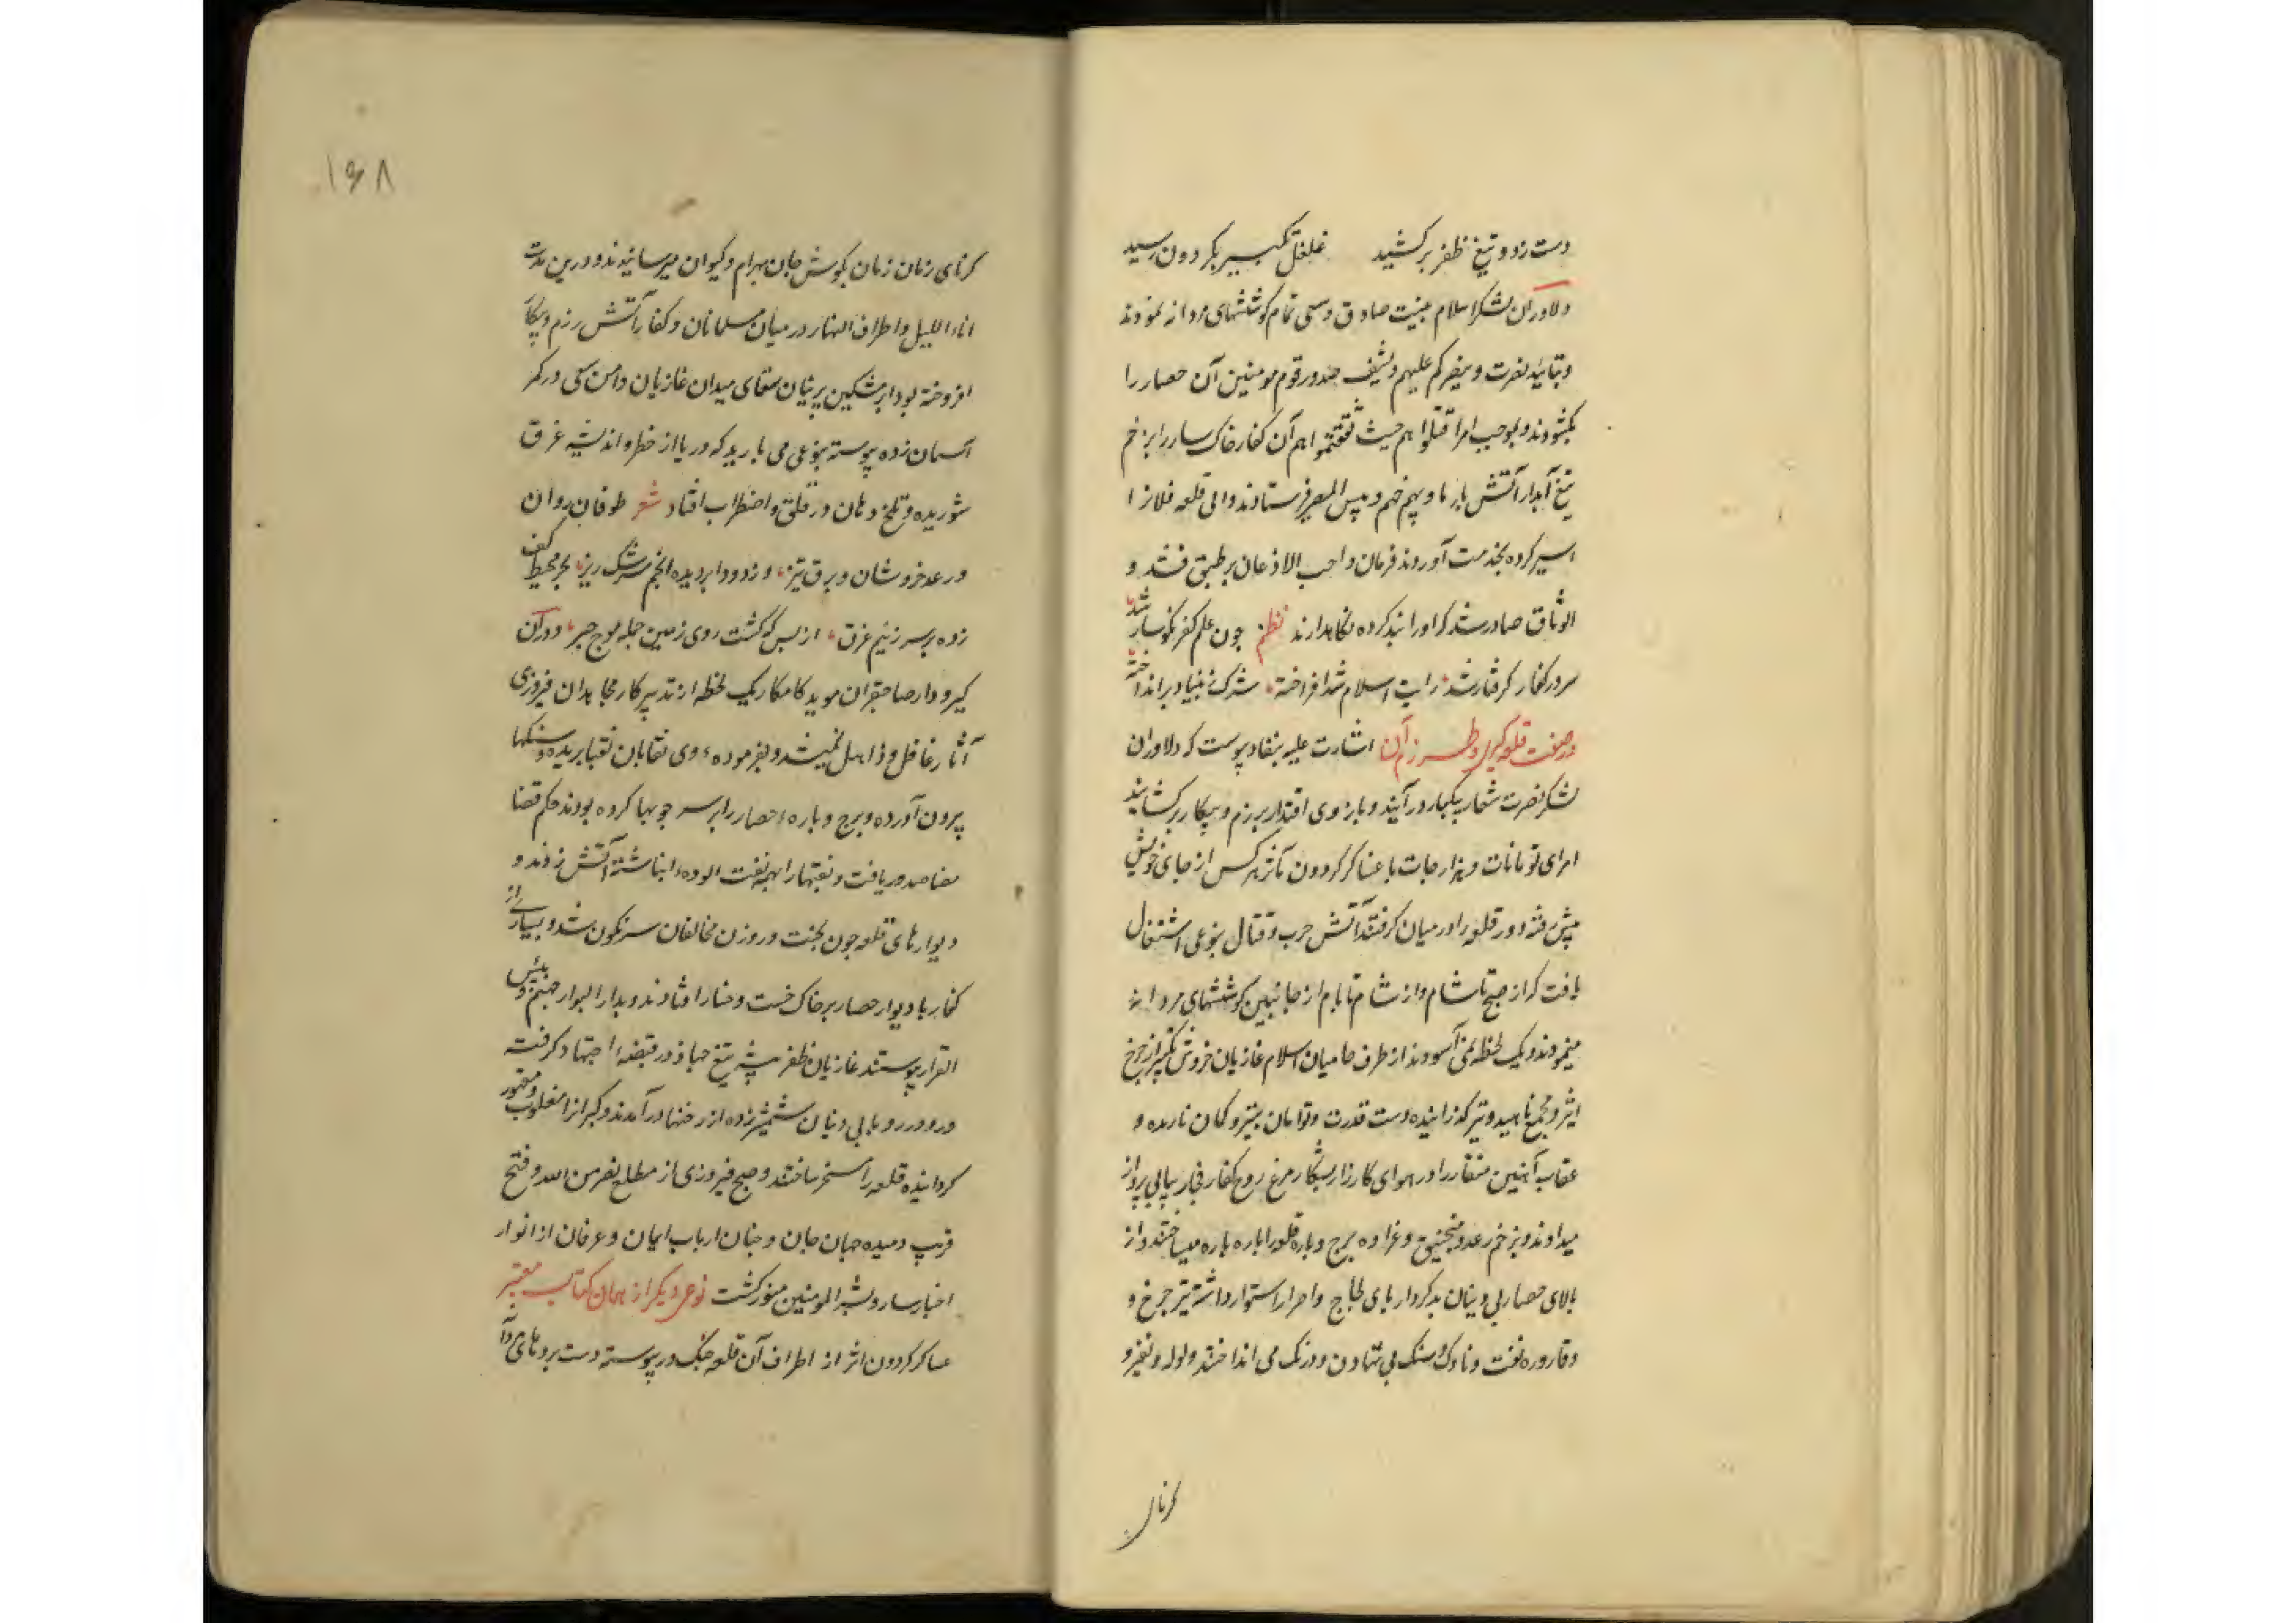 دست زد و تیغ ظفر برکشید غلغل تکبیر بکردون رسید
دلاوران لشکر اسلام بنیت صادق و سعی تمام کوششهای مردانه نمودند
و بتائید نصرت و ینصرکم علیهم و یشف صدور قوم مومنین آن حصار را
بکشودند و بموجب امر اقتلوا هم حیث ثقفتموا هم آن کفار خاکسار را بزخم
تیغ آبدار آتش بار بنار جهنم و بئس المصیر فرستادند و والی قلعه فلاز ا
اسیر کرده بخدمت آوردند فرمان واجب الاذعان بر طبق فشد و
الوثاق صادر شد که او را بند کرده نکاهدارند نظم چون علم کفر نکونسار شد
سرور کفار کرفتار شد رایت اسلام شد افراخته شرک ز بنیاد برانداخته
در صفت قلعه کبرل و طرز آن اشارت علیه بنفاد پیوست که دلاوران
لشکر نصرت شعار بیکبار در آیند و بازوی اقتدار برزم و پیکار برکشایند
امرای تومانات و هزارجات با عساکر کردون مآثر هر کس از جای خویش
پیش رفته دور قلعه را در میان کرفتند آتش حرب و قتال بنوعی اشتعال
یافت که از صبح تا شام و از شام تا بام از جانبین کوششهای مردانه
مینمودند و یک لحظه نمی آسودند از طرف حامیان اسلام غازیان خروش تکبیر از چرخ
اثیر و مجمع ناهید و تیر کذرانیده دست قدرت و توامان بتیر و کمان نارده و
عقاب آهنین منقار را در هوای کارزار بشکار مرغ روح کفار فجار پیاپی پرواز
میدادند و بزخم رعد و منجنیق و عراده برج و باره قلعه را پاره پاره میساختند و از
بالای حصار بی دینان بدکردار پای لجاج و اصرار استوار داشته تیر چرخ و
و قاروره نفت و ناوک و سنک بی تهاون و درنک می انداختند و لوله و نفیر و
کرنای
۱۶۸
کرنای زمان زمان بکوش جان بهرام و کیوان میرسانیدند و درین مدت
اناء اللیل و اطراف النهار در میان مسلمانان و کفار آتش رزم و پیکار
افروخته بود ابر مشکین پرنیان سقای میدان غازیان دامن سعی در کمر
آسمان زده پیوسته بنوعی می بارید که دریا از خطر و اندیشه غرق
شوریده و تلخ دهان در قلق و اضطراب افتاد شعر طوفان روان
و رعد خروشان و برق تیز وز دود ابر دیده انجم سرشک ریز بحر محیط کف
زده بر سر ز بیم غرق از بس که کشت روی زمین جمله موج خیز و در آن
کیرودار صاحبقران موید کامکار یک لحظه از تدبیر کار مجاهدان فیروزی
آثار غافل و ذاهل نمیشد و بفرموده وی نقابان نقبها بریده و سنکها
بیرون آورده و برج و باره حصار را بر سر چوبها کرده بودند حکم قضا
مضا صدور یافت و نقبها را بهیمه نفت آلوده انباشته آتش زدند و
دیوارهای قلعه چون بخت و روز مخالفان سرنکون شد و بسیاری از
کفار با دیوار حصار بر خاک خست و خسار افتادند و بدار البوار جهنم و بئس
القرار پیوستند غازیان ظفر پیشه تیغ جهاد در قبضه اجتهاد کرفته
و رو در رو با بی دینان شمشیر زده از رخنها در آمدند و کبران را مغلوب و مقهور
کردانیده قلعه را مسخر ساختند و صبح فیروزی از مطلع نصر من الله و فتح
قریب دمیده جهان جان و جنان ارباب ایمان و عرفان از انوار
اخبار سار و بشر المومنین منور کشت نوعی دیکر از همان کتاب معتبر
عساکر کردون اثر از اطراف آن قلعه جنک در پیوسته دست بردهای مردانه